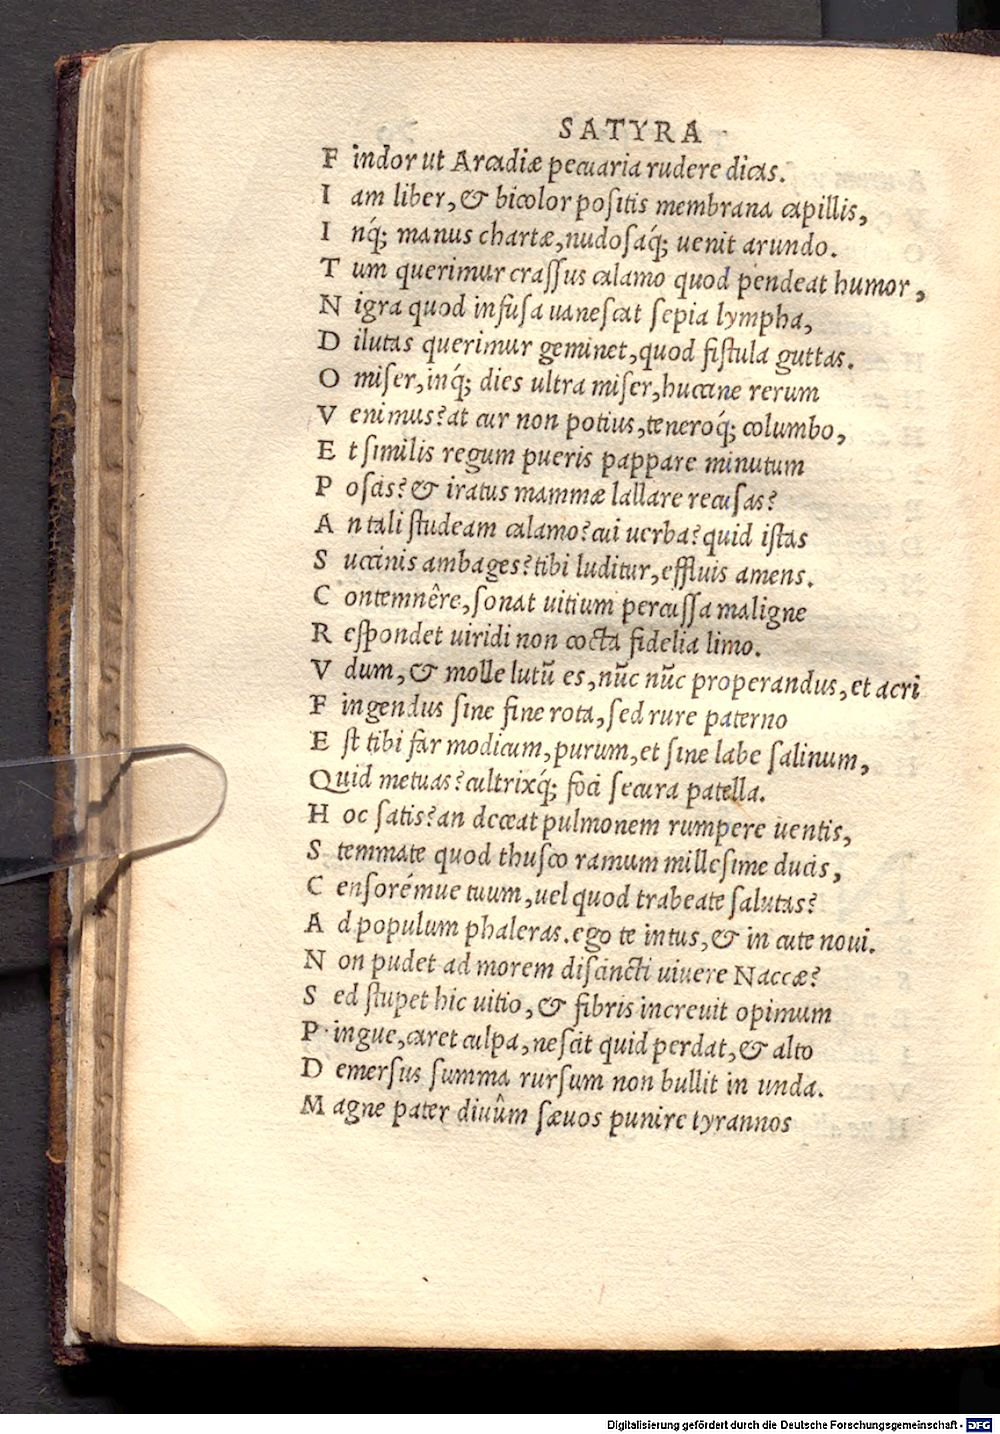 SATYRA
F indor ut Arcadiæ pecuaria rudere dicas.
I am liber, & bicolor poſitis membrana capillis,
I nq́; manus chartæ, nudoſaq́; uenit arundo.
T um querimur craſſus calamo quod pendeat humor,
N igra quod infuſa uaneſcat ſepia lympha,
D ilutas querimur geminet, quod fiſtula guttas.
O miſer, inq́; dies ultra miſer, huccine rerum
V enimus? at cur non potius, teneroq́; columbo,
E t ſimilis regum pueris pappare minutum
P oſcis? & iratus mammæ lallare recuſas?
A n tali ſtudeam calamo? cui uerba? quid iſtas
S uccinis ambages? tibi luditur, effluis amens.
C ontemnêre, ſonat uitium percuſſa maligne
R eſpondet uiridi non cocta fidelia limo.
V dum, & molle lutū es, nūc nūc properandus, et acri
F ingendus ſine fine rota, ſed rure paterno
E ſt tibi far modicum, purum, et ſine labe ſalinum,
Quid metuas? cultrixq́; foci ſecura patella.
H oc ſatis? an deceat pulmonem rumpere uentis,
S temmate quod thuſco ramum milleſime ducis,
C enſorémue tuum, uel quod trabeate ſalutas?
A d populum phaleras. ego te intus, & in cute noui.
N on pudet ad morem diſcincti uiuere Naccæ?
S ed ſtupet hic uitio, & fibris increuit opimum
P ingue, caret culpa, neſcit quid perdat, & alto
D emerſus ſumma rurſum non bullit in unda.
M agne pater diuûm ſæuos punire tyrannos
Digitalisierung gefördert durch die Deutsche Forschungsgemeinschaft - DFG